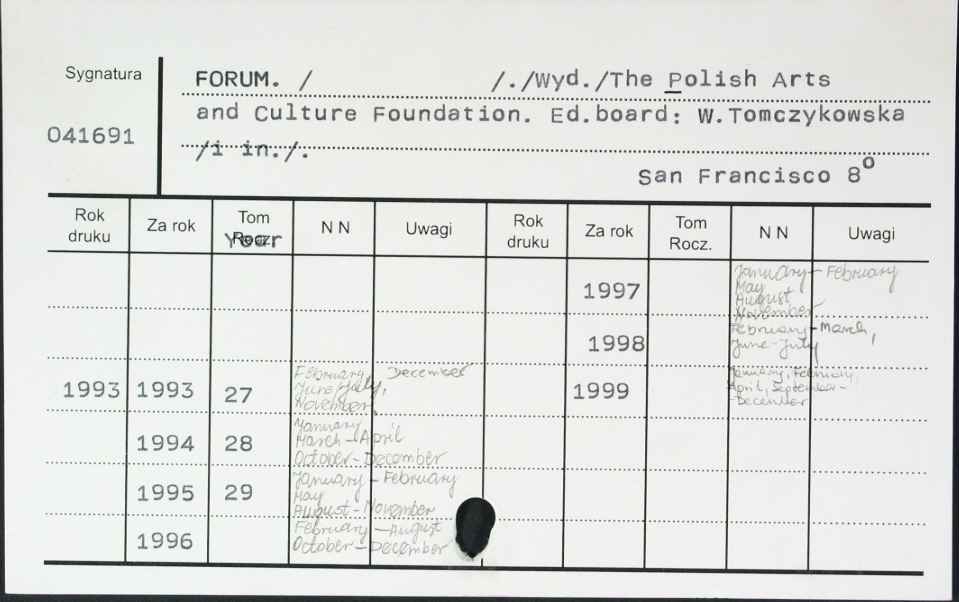 Sygnatura
041691
FORUM. / /./Wyd./The Polish Arts
and Culture Foundation. Ed.board: W.Tomczykowska
/i in./.
San Francisco 8º
Rok druku Za rok Tom Rocz. Year N N Uwagi Rok druku Za rok Tom Rocz. N N Uwagi
1993 1993 27 February December
June/July,
November,
1994 28 January
March-April
October-December
1995 29 January-February
May
August-November
1996 February-August
October-December
1997 January-February
May
August
November
1998 February-March,
June-July
1999 January, February,
April, September-
-December